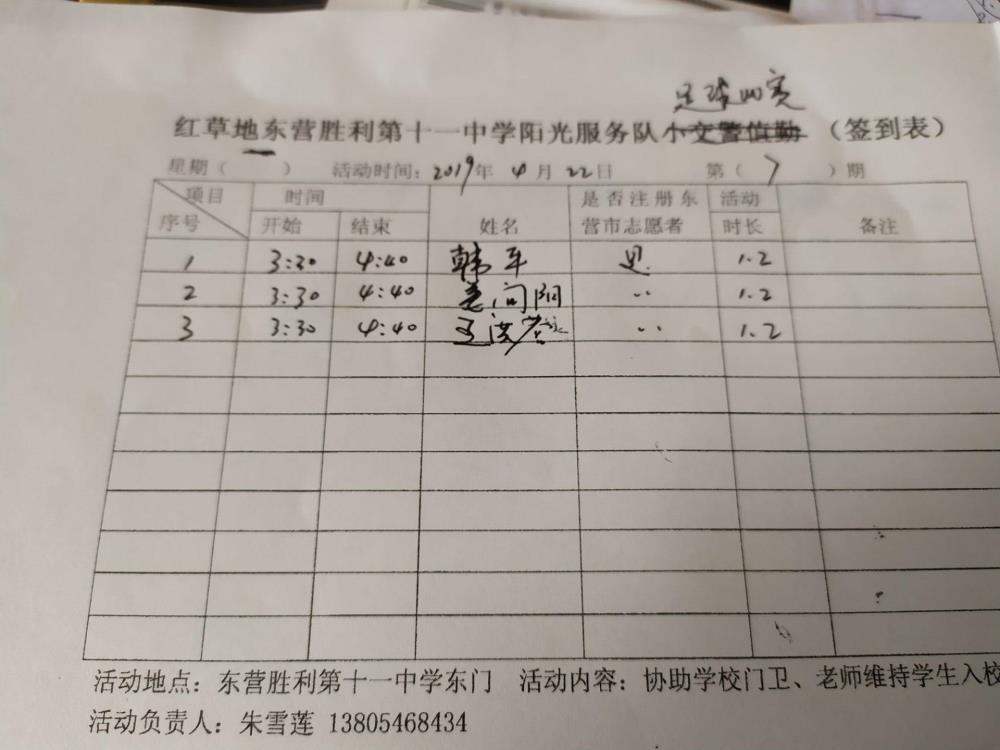 足球比赛
红草地东营胜利第十一中学阳光服务队小交警值勤（签到表）
星期（　　）　活动时间：2019年 4月 22日　第（ 7 ）期
项目 时间 是否注册东 活动
序号 开始 结束 姓名 营市志愿者 时长 备注
1 3:30 4:40 韩军 是. 1.2
2 3:30 4:40 问阳 ‥ 1.2
3 3:30 4:40 王洪 ‥ 1.2
活动地点：东营胜利第十一中学东门　活动内容：协助学校门卫、老师维持学生入校
活动负责人：朱雪莲 13805468434